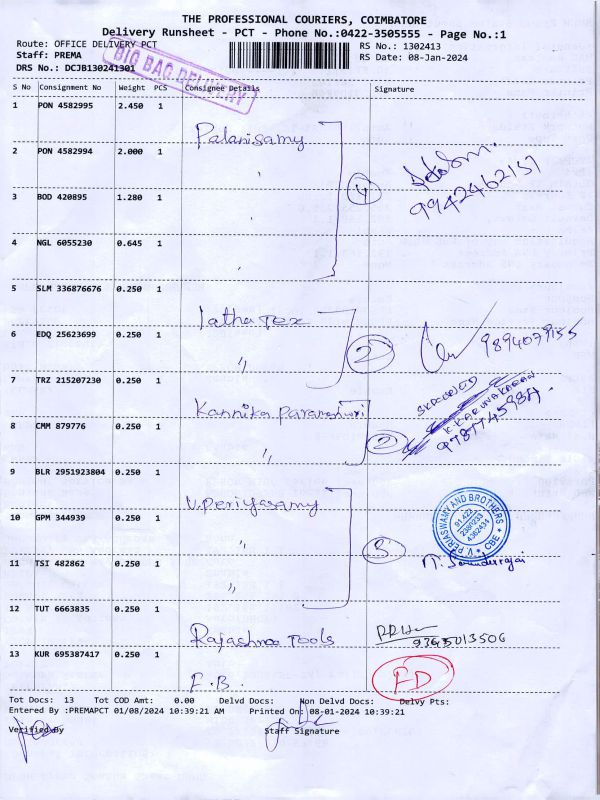 THE PROFESSIONAL COURIERS, COIMBATORE
Delivery Runsheet - PCT - Phone No.:0422-3505555 - Page No.:1
Route: OFFICE DELIVERY PCT
RS No.: 1302413
Staff: PREMA
RS Date: 08-Jan-2024
DRS No.: DCJB130241301
BIG BAG DELIVERY
S No Consignment No Weight PCS Consignee Details Signature
1 PON 4582995 2.450 1
Palanisamy
2 PON 4582994 2.000 1
4
9942462137
3 BOD 420895 1.280 1
4 NGL 6055230 0.645 1
5 SLM 336876676 0.250 1
latha Tex
6 EDQ 25623699 0.250 1
2
9894079155
7 TRZ 215207230 0.250 1
Kannika Parameshwri
K. KARUNAKARAN
8 CMM 879776 0.250 1
2
9 BLR 2951923804 0.250 1
V. Periyasamy
10 GPM 344939 0.250 1
V PERIASWAMY AND BROTHERS
CBE
3
11 TSI 482862 0.250 1
12 TUT 6663835 0.250 1
Rajashree Tools
9365013506
13 KUR 695387417 0.250 1
F.B.
FD
Tot Docs: 13 Tot COD Amt: 0.00 Delvd Docs: Non Delvd Docs: Delvy Pts:
Entered By :PREMAPCT 01/08/2024 10:39:21 AM Printed On: 08-01-2024 10:39:21
Verified By
Staff Signature